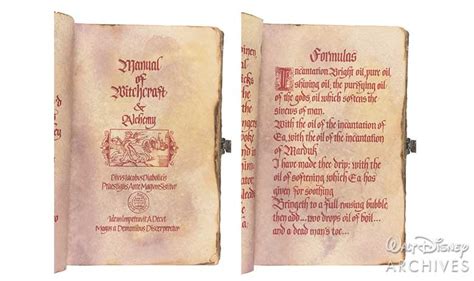 Manual
of
Witchcraft
&
Alchemy
Divus Jacobus Diabolicis
Praestigiis Ante Magum Sistitur
A Decet
Magus a Demonibus Discerperetur
Formulas
Incantation Bright oil, pure oil,
shining oil, the purifying oil
of the gods, oil which softens the
sinews of man.
With the oil of the incantation of
Ea, with the oil of the incantation
of Marduk,
I have made thee drip: with the
oil of softening which Ea has
given for soothing
Bringeth to a full rousing bubble
then add... two drops of oil of boil...
and a dead man's toe...
WALT DISNEY
ARCHIVES